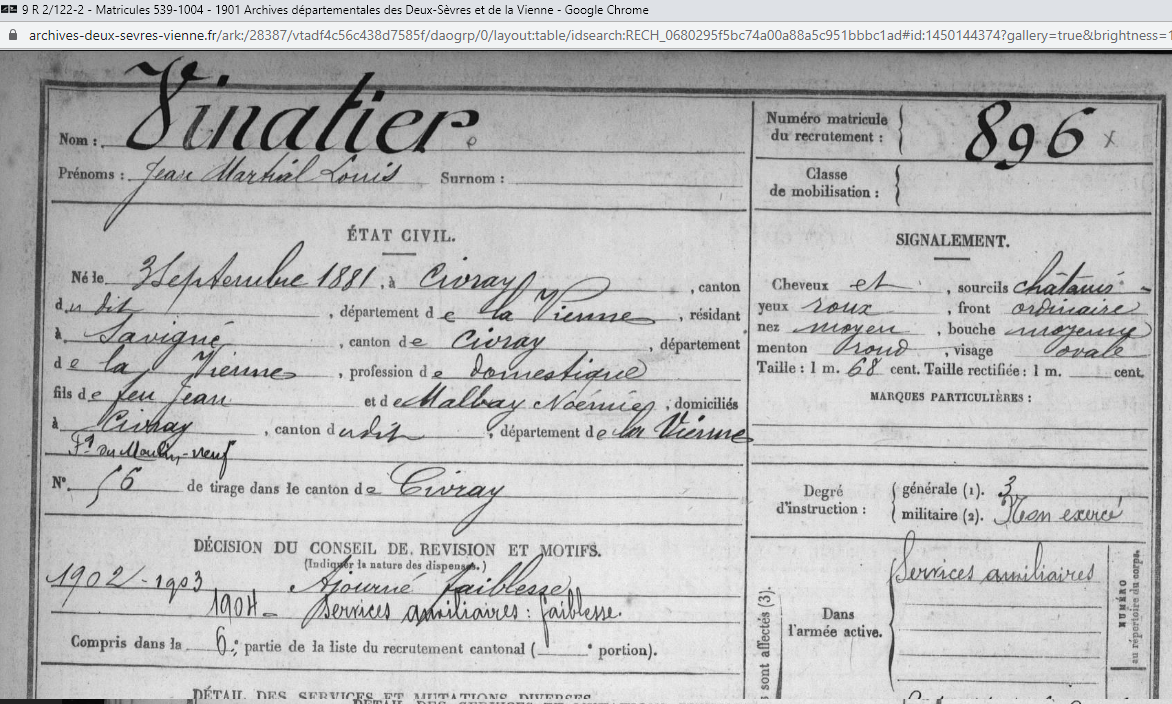 9 R 2/122-2 - Matricules 539-1004 - 1901 Archives départementales des Deux-Sèvres et de la Vienne - Google Chrome
archives-deux-sevres-vienne.fr/ark:/28387/vtadf4c56c438d7585f/daogrp/0/layout:table/idsearch:RECH_0680295f5bc74a00a88a5c951bbbc1ad#id:1450144374?gallery=true&brightness=1
Nom : Vinatier
Prénoms : Jean Martial Louis Surnom :
Numéro matricule du recrutement : 896 x
Classe de mobilisation :
ÉTAT CIVIL.
Né le 3 Septembre 1881, à Civray, canton
du dit, département de la Vienne, résidant
à Savigné, canton de Civray, département
de la Vienne, profession de domestique
fils de feu Jean et de Malbay Noémie, domiciliés
à Civray, canton du dit, département de la Vienne
Fg du Moulin-neuf
N° 56 de tirage dans le canton de Civray
SIGNALEMENT.
Cheveux et, sourcils châtains
yeux roux, front ordinaire
nez moyen, bouche moyenne
menton rond, visage ovale
Taille : 1 m. 68 cent. Taille rectifiée : 1 m. cent.
MARQUES PARTICULIÈRES :
Degré d'instruction : générale (1). 3
militaire (2). Non exercé
DÉCISION DU CONSEIL DE REVISION ET MOTIFS.
(Indiquer la nature des dispenses.)
1902-1903 Ajourné faiblesse
1904 - Services auxiliaires : faiblesse.
Compris dans la 6e partie de la liste du recrutement cantonal ( portion).
Dans l'armée active.
Services auxiliaires
NUMÉRO
au répertoire du corps.
sont affectés (3).
DÉTAIL DES SERVICES ET MUTATIONS DIVERSES